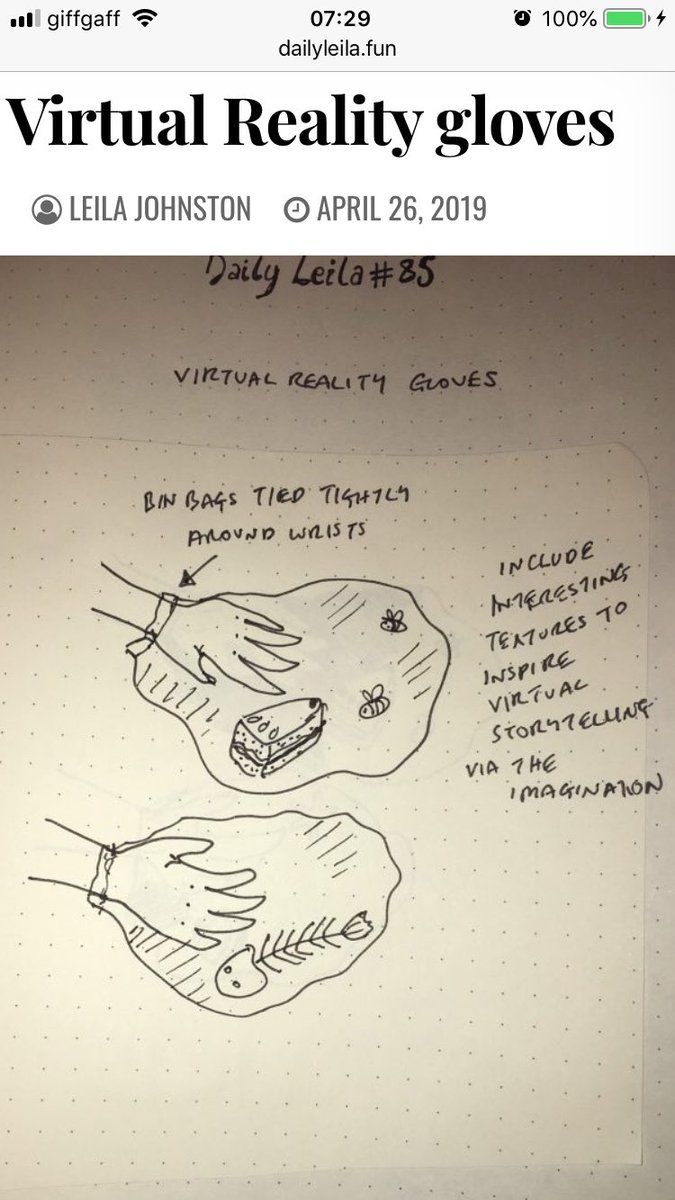 giffgaff 07:29 100%
dailyleila.fun
Virtual Reality gloves
LEILA JOHNSTON APRIL 26, 2019
Daily Leila #85
VIRTUAL REALITY GLOVES
BIN BAGS TIED TIGHTLY
AROUND WRISTS
INCLUDE
INTERESTING
TEXTURES TO
INSPIRE
VIRTUAL
STORYTELLING
VIA THE
IMAGINATION